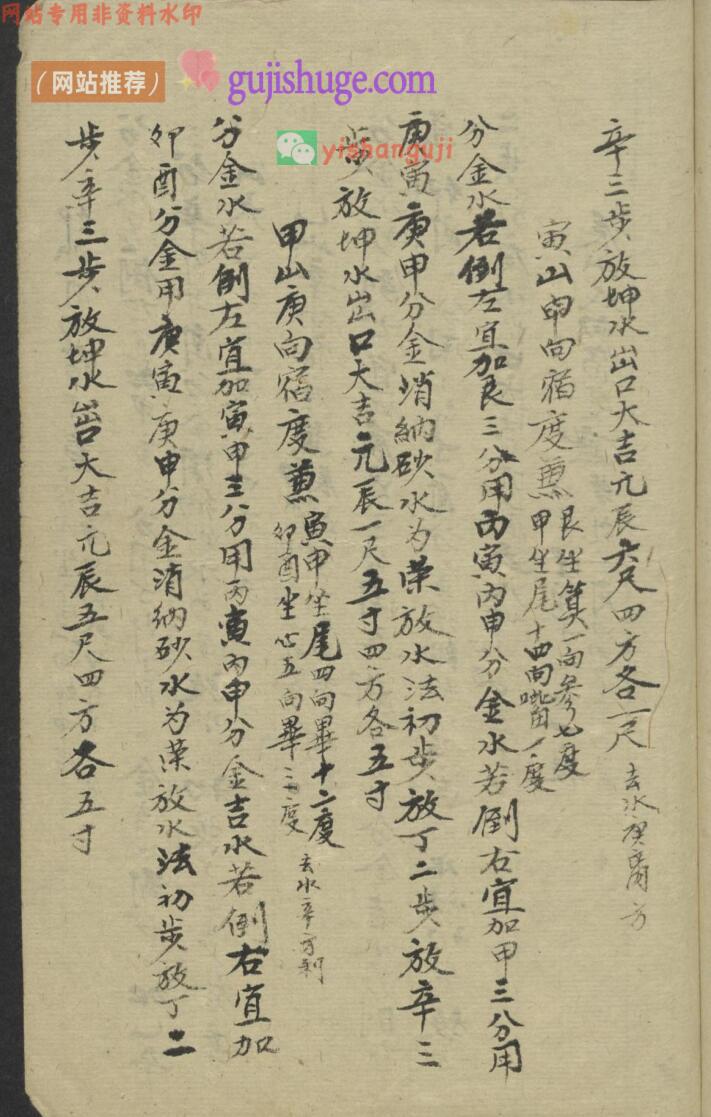 网站专用非资料水印
（网站推荐）
gujishuge.com
yishanguji
辛三步放坤水出口大吉元辰六尺四方各一尺 去水庚
寅山申向宿度兼 艮坐箕一向参七度
甲坐尾十四向觜一度
分金水若倒左宜加艮三分用丙寅丙申分金水若倒右宜加甲三分用
庚寅庚申分金消納砂水为荣放水法初步放丁二步放辛三
步放坤水出口大吉元辰一尺五寸四方各五寸
甲山庚向宿度兼 寅申坐尾四向畢十二度
卯酉坐心五向畢三度 去水辛方利
分金水若倒左宜加寅申三分用丙寅丙申分金吉水若倒右宜加
卯酉分金用庚寅庚申分金消納砂水为荣放水法初步放丁二
步辛三步放坤水出口大吉元辰五尺四方各五寸